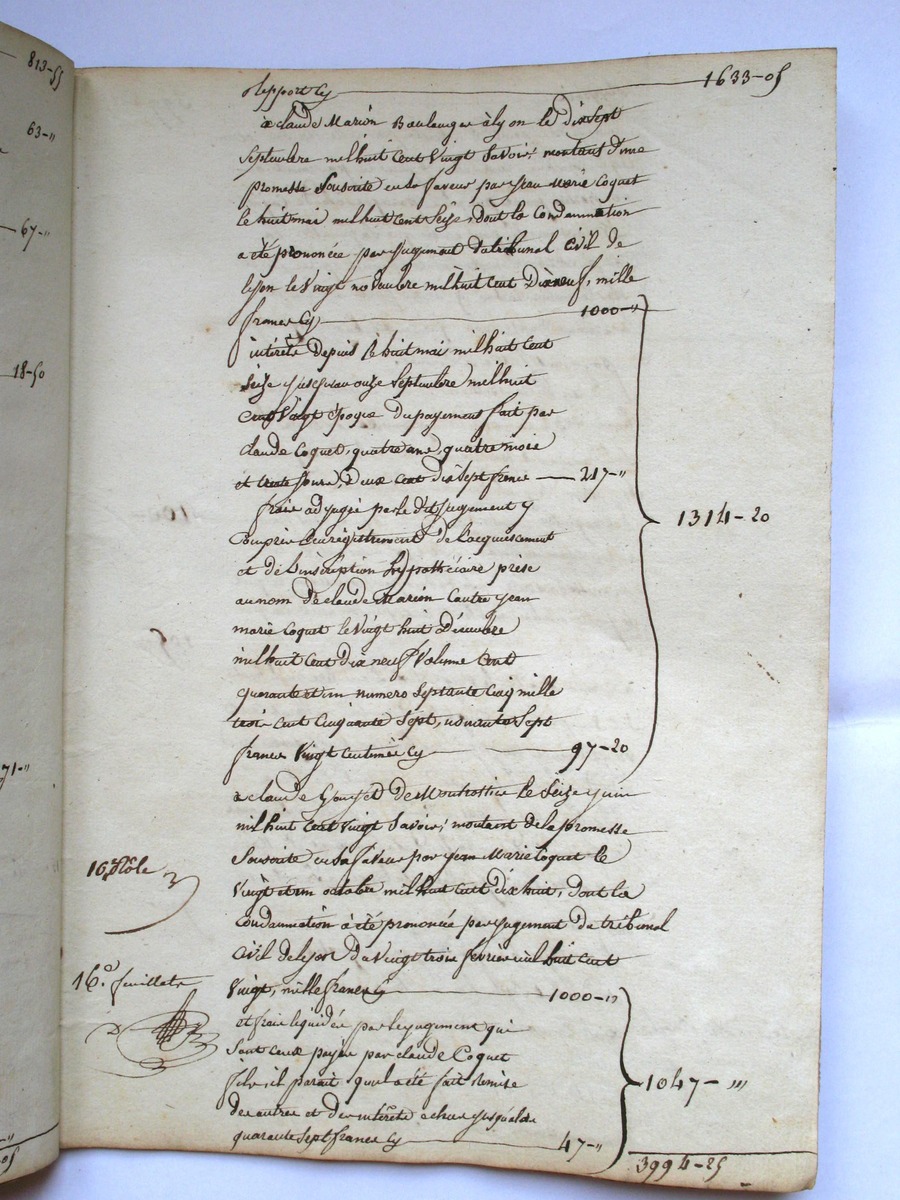 813-55
63-"
67-"
18-50
71-"
Report Cy 1633-05
a claude Marion Boulanger à lyon le dix sept
Septembre mil huit Cent Vingt Savoir; montant d'une
promesse Souscrite en sa faveur par Jean Marie Coquet
le huit mai mil huit Cent Seize, dont la Condamnation
a été prononcée par Jugement du tribunal Civil de
lyon le Vingt novembre mil huit Cent Dix neuf, mille
francs Cy 1000-"
intérêts Depuis le huit mai mil huit Cent
Seize Jusqu'au onze Septembre mil huit
Cent Vingt époque du payement fait par
Claude Coquet, quatre ans, quatre mois
et trente Jours, Deux Cent dix Sept francs 217-"
frais adjugés par le dit Jugement y
Compris l'enrégistrement de l'acquiescement
et de l'inscription hypothécaire prise
au nom De claude Marion Contre Jean
marie Coquet le Vingt huit Décembre
mil huit Cent Dix neuf Volume Cent
quarante et un numero Septante Cinq mille
trois Cent Cinquante Sept, nonante Sept
francs Vingt Centimes Cy 97-20
1314-20
a claude De le Seize Juin
mil huit Cent Vingt Savoir; montant de la promesse
Souscrite en sa faveur par Jean Marie Coquet le
Vingt et un octobre mil huit Cent dix huit, dont la
Condamnation a été prononcée par Jugement du tribunal
Civil de lyon du Vingt trois février mil huit Cent
16e Rôle
16e. feuillet
Vingt, mille francs Cy 1000-"
et frais liquidés par le Jugement qui
Sont Ceux payés par claude Coquet
fils, il parait qu'il a été fait remise
des autres et des intérêts échus Jusqu'alors
quarante Sept francs Cy 47-"
1047-"
3994-25